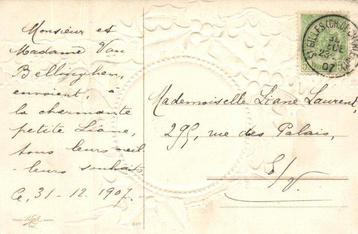 Monsieur et
Madame Van
Bellinghen,
envoient, à
la charmante
petite Liane,
tous leurs meil-
leurs souhaits
Ce, 31-12.1907.
Mademoiselle Liane Laurent,
295, rue des Palais,
E/V.
07